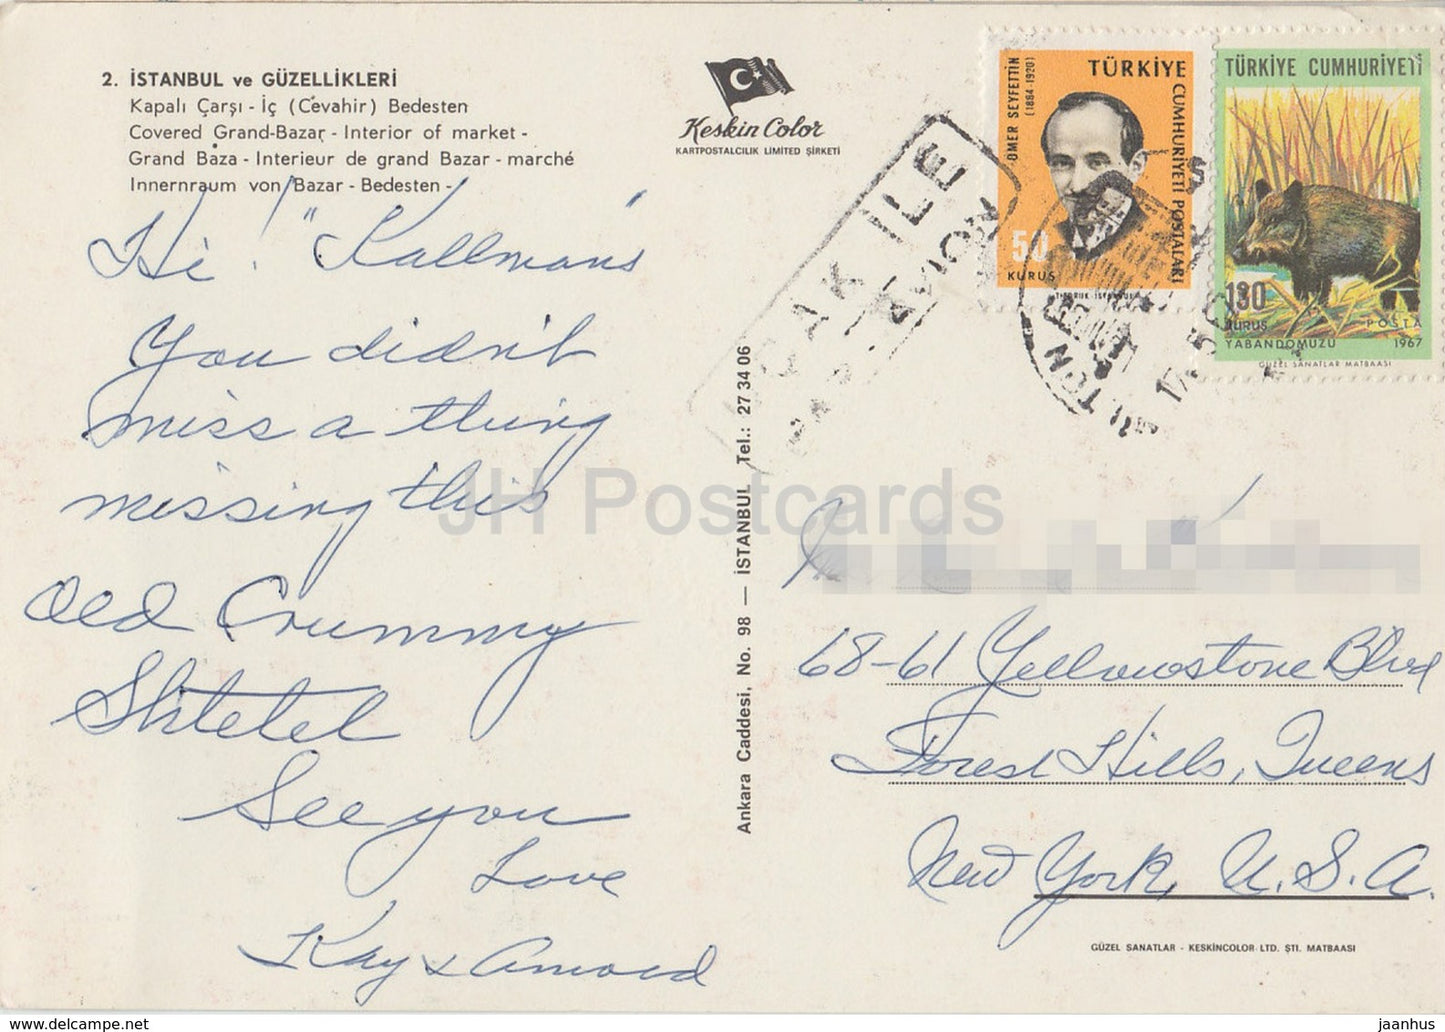 2. İSTANBUL ve GÜZELLİKLERİ
Kapalı Çarşı - İç (Cevahir) Bedesten
Covered Grand-Bazar - Interior of market -
Grand Baza - Interieur de grand Bazar - marché
Innernraum von Bazar - Bedesten -
Keskin Color
KARTPOSTALCILIK LIMITED ŞİRKETİ
Hi! "Kallmans
You didn't
miss a thing
missing this
Old Crummy
Shtetel
See you
Love
Kay & Arnold
Ankara Caddesi, No. 98 — İSTANBUL Tel.: 27 34 06
UÇAK İLE
PAR AVION
TÜRKİYE
CUMHURİYETİ POSTALARI
ÖMER SEYFETTİN
(1884-1920)
50
KURUŞ
TÜRKİYE CUMHURİYETİ
130
KURUŞ
POSTA
YABANDOMUZU 1967
GÜZEL SANATLAR MATBAASI
68-61 Yellowstone Blvd
Forest Hills, Queens
New York, U.S.A.
GÜZEL SANATLAR - KESKİNCOLOR LTD. ŞTİ. MATBAASI
JH Postcards
delcampe.net
jaanhus